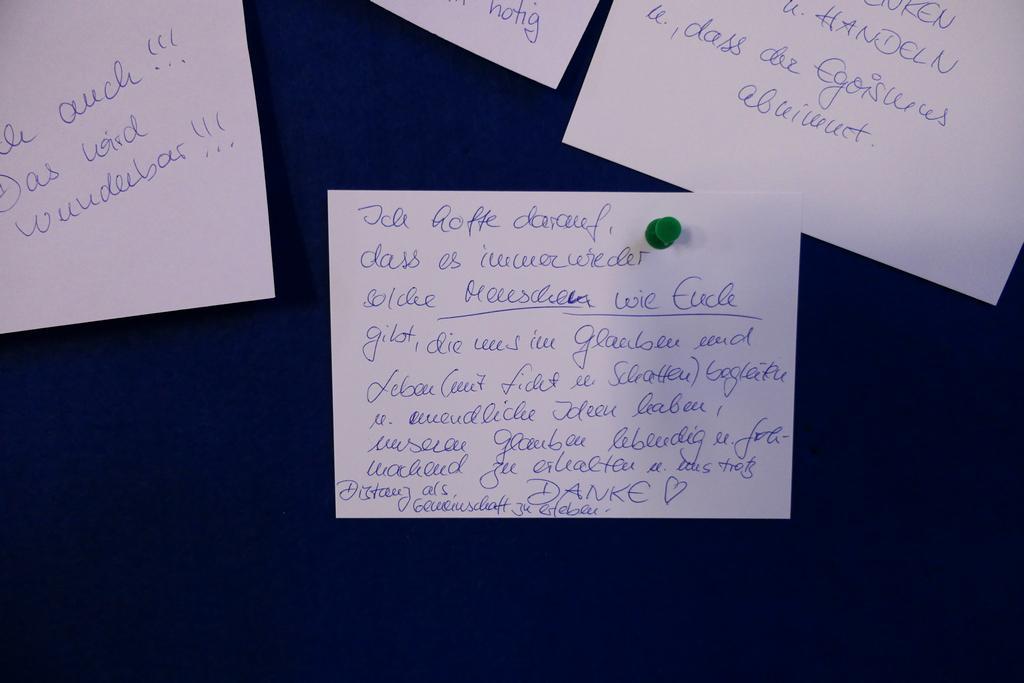 auch!!!
Das wird
wunderbar!!!
nötig
u. HANDELN
u., dass der Egoismus
abnimmt.
Ich hoffe darauf,
dass es immer wieder
solche Menschen wie Euch
gibt, die uns im Glauben und
Leben (mit Licht u. Schatten) begleiten
u. unendliche Ideen haben,
unseren Glauben lebendig u. froh-
machend zu erhalten u. uns trotz
Distanz als DANKE ♡
Gemeinschaft zu erleben.